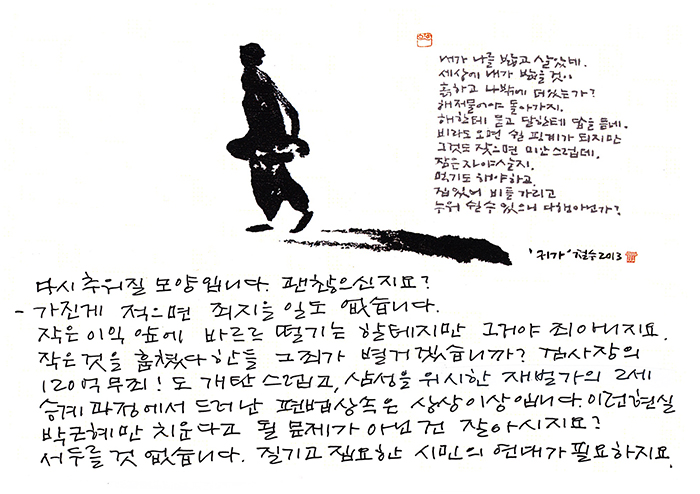 내가 나를 밟고 살았네.
세상에 내가 밟을 것이
흙하고 나밖에 더있는가?
해저물어야 돌아가지.
해한테 묻고 달한테 답을 듣네.
비라도 오면 쉴 핑계가 되지만
그것도 잦으면 미안스럽데.
잠은 자야살지.
먹기도 해야하고.
집있어 비를 가리고
누워 쉴 수 있으니 다행아닌가?
'귀가' 철수2013
다시 추워질 모양입니다. 괜찮으신지요?
- 가진게 적으면 죄지을 일도 없습니다.
작은 이익 앞에 바르르 떨기는 할테지만 그거야 죄아니지요.
작은 것을 훔쳤다 한들 그죄가 별거겠습니까? 검사장의
120억 무죄! 도 개탄스럽고, 삼성을 위시한 재벌가의 2세
승계과정에서 드러난 편법상속은 상상이상입니다. 이런현실
박근혜만 치운다고 될 문제가 아닌 건 잘아시지요?
서두를 것 없습니다. 질기고 집요한 시민의 연대가 필요하지요.